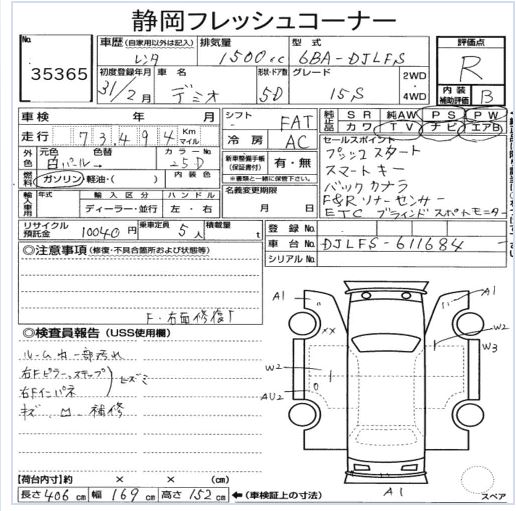 静岡フレッシュコーナー
No.
35365
車歴 (自家用以外は記入)
レンタ
排気量
1500cc
型式
6BA-DJLFS
評価点
R
初度登録年月
31/2月
車名
デミオ
形状・ドア数
5D
グレード
15S
2WD
4WD
内装
補助評価
B
車検 年 月
走行 73,494 Km
マイル
シフト
FAT
冷房
AC
純正品
SR 純AW PS PW
カワ TV ナビ エアB
外色
元色
白パール→
色替
カラーNo.
25D
燃料
ガソリン・軽油・( )
内装色
新車整備手帳
(保証書付)
有・無
※書類と一緒に保管下さい。
セールスポイント
プッシュスタート
スマートキー
バックカメラ
F&Rソナーセンサー
ETC ブラインドスポットモニター
輸入車
年式
輸入区分
ディーラー・並行
ハンドル
左・右
名義変更期限
月 日
リサイクル
預託金
10040円
乗車定員
5人
積載量
t
登録No.
車台No.
DJLFS-611684
シリアルNo.
◎注意事項 (修復・不具合箇所および状態等)
F・右面修復有
◎検査員報告 (USS使用欄)
ルーム内一部汚れ
右Fピラー、ステップ
右Fインパネ
ヒズミ
キズ、凹、補修
A1
A1
XX
W2
W3
W2
AU2
A1
スペア
【荷台内寸】約 × × (cm)
長さ 406 cm 幅 169 cm 高さ 152 cm ←(車検証上の寸法)